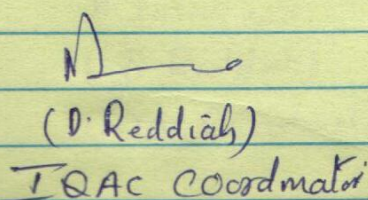 (D. Reddiah)
IQAC Coordmator